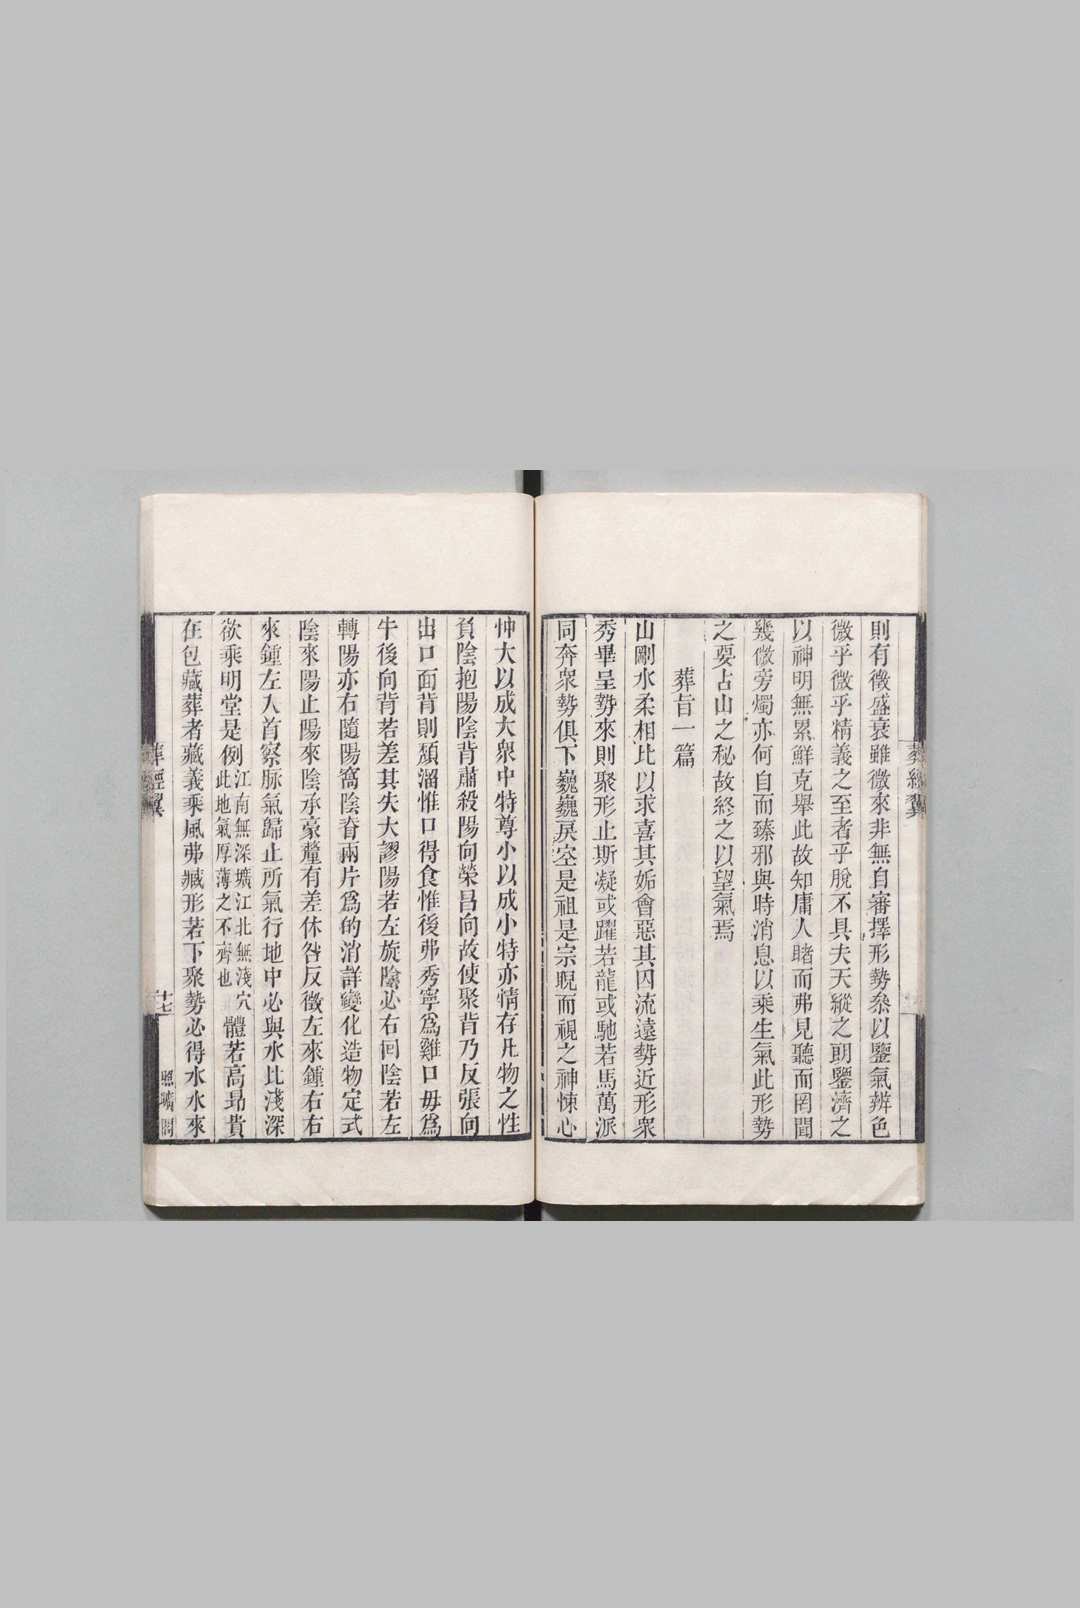 則有徵盛衰雖微來非無自審擇形勢叅以鑒氣辨色
微乎微乎精義之至者乎脫不具夫天縱之朗鑒濟之
以神明無累鮮克舉此故知庸人睹而弗見聽而罔聞
幾微旁燭亦何自而臻邪與時消息以乘生氣此形勢
之要占山之秘故終之以望氣焉
葬旨一篇
山剛水柔相比以求喜其妬會惡其囚流遠勢近形衆
秀畢呈勢來則聚形止斯凝或躍若龍或馳若馬萬派
同奔衆勢俱下巍巍戾空是祖是宗睨而視之神悚心
忡大以成大衆中特尊小以成小特亦情存凡物之性
負陰抱陽陰背肅殺陽向榮昌向故使聚背乃反張向
出口面背則頮溜惟口得食惟後弗秀寧爲雞口毋爲
牛後向背若差其失大謬陽若左旋陰必右回陰若左
轉陽亦右隨陽窩陰脊兩片爲的消詳變化造物定式
陰來陽止陽來陰承豪釐有差休咎反徵左來鍾右右
來鍾左入首察脉氣歸止所氣行地中必與水比淺深
欲乘明堂是例江南無深壙江北無淺穴此地氣厚薄之不齊也體若高昂貴
在包藏葬者藏義乘風弗臧形若下聚勢必得水水來
葬經翼
十七
照曠閣